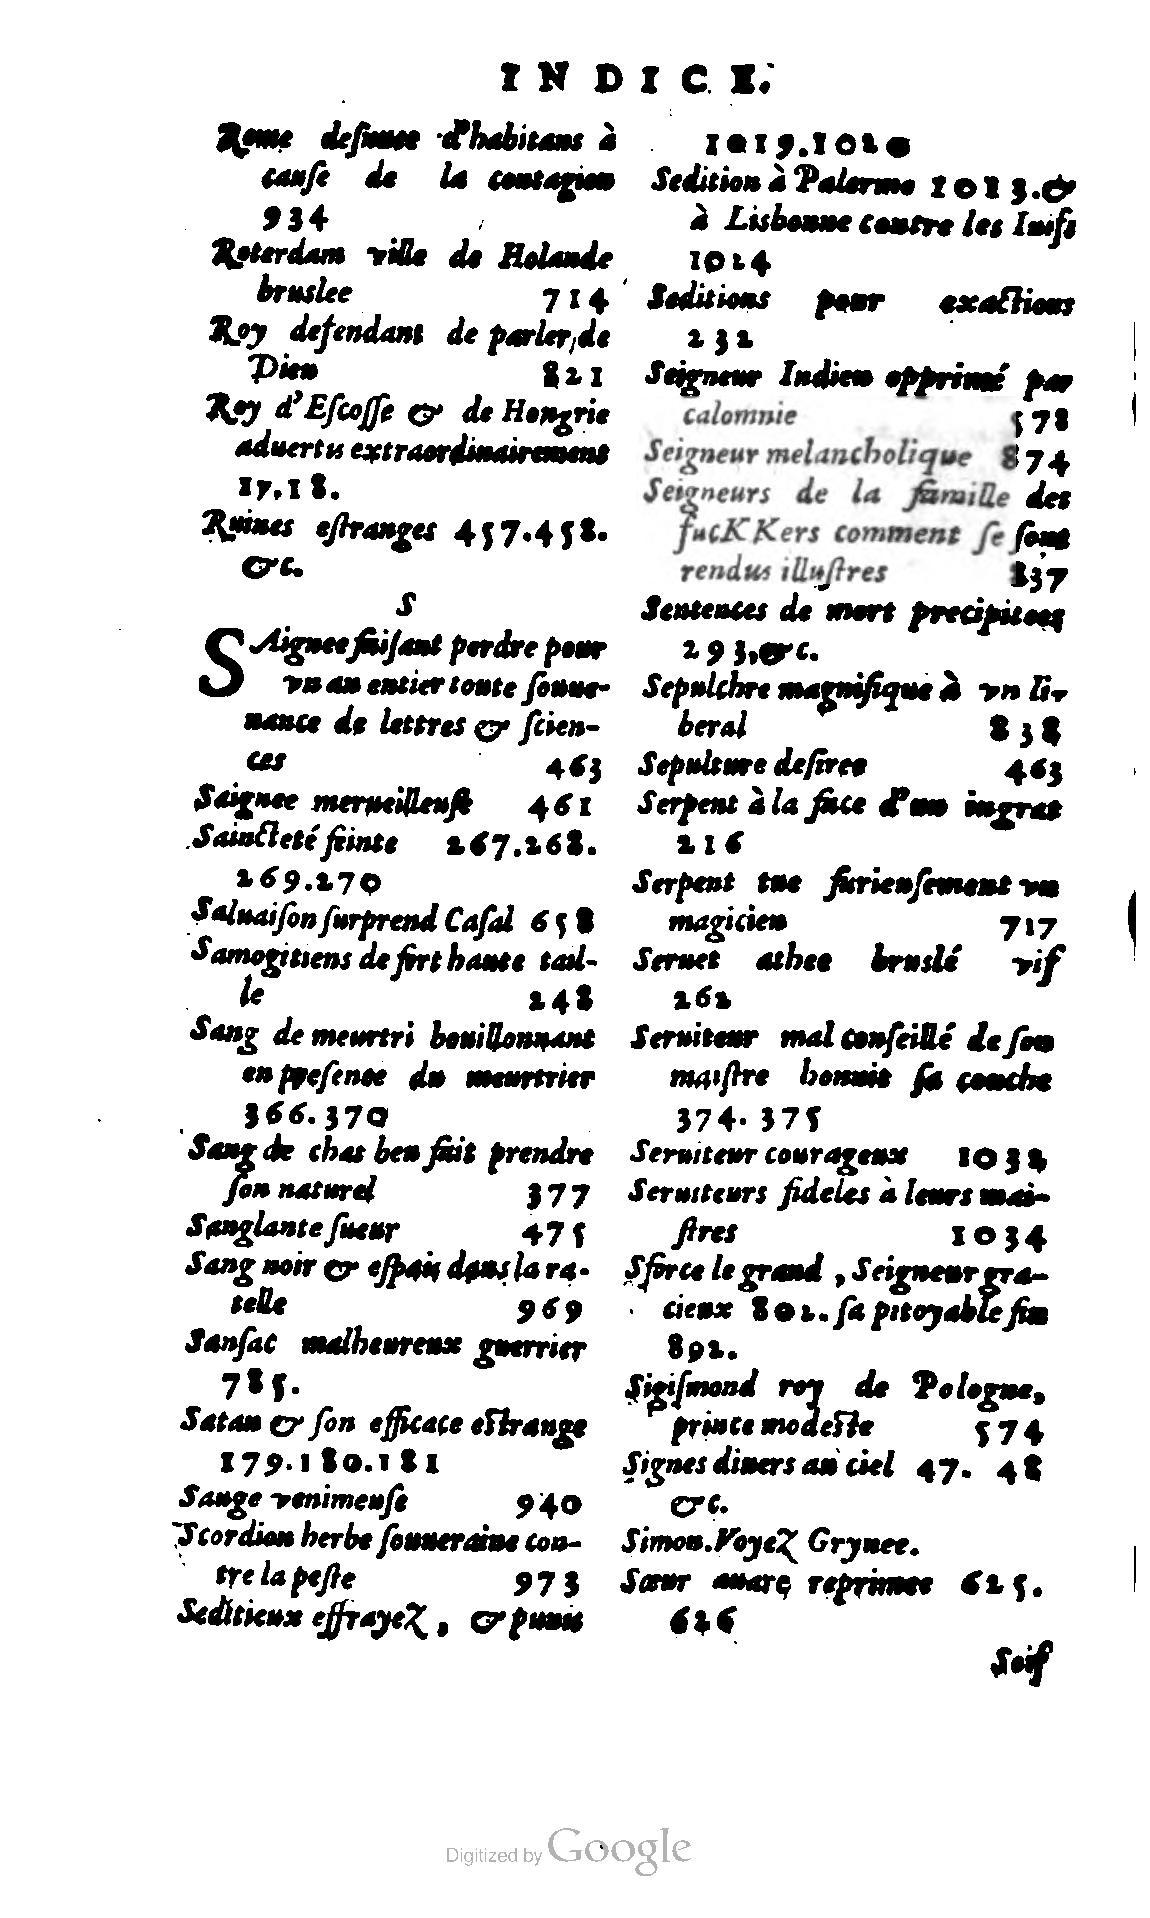 INDICE.
Rome desnuee d'habitans à
cauſe de la contagion
934
Roterdam ville de Holande
bruslee 714
Roy defendant de parler de
Dieu 821
Roy d'Eſcoſſe & de Hongrie
aduertis extraordinairement
17.18.
Ruines eſtranges 457.458.
&c.
S
SAignee faiſant perdre pour
vn an entier toute ſouue-
nance de lettres & ſcien-
ces 463
Saignee merueilleuſe 461
Saincteté feinte 267.268.
269.270
Saluaiſon ſurprend Caſal 658
Samogitiens de fort haute tail-
le 248
Sang de meurtri bouillonnant
en preſence du meurtrier
366.370
Sang de chat beu fait prendre
ſon naturel 377
Sanglante ſueur 475
Sang noir & eſpais dans la ra-
telle 969
Sanſac malheureux guerrier
785.
Satan & ſon efficace estrange
179.180.181
Sauge venimeuſe 940
Scordion herbe ſouueraine con-
tre la peſte 973
Seditieux effrayeZ, & punis
1019.1020
Sedition à Palerme 1023.&
à Lisbonne contre les Iuifs
1024
Seditions pour exactions
232
Seigneur Indien opprimé par
calomnie 578
Seigneur melancholique 874
Seigneurs de la famille des
fucKKers comment ſe ſont
rendus illuſtres 837
Sentences de mort precipitees
293,&c.
Sepulchre magnifique à vn li-
beral 838
Sepulture deſiree 463
Serpent à la face d'vn ingrat
216
Serpent tue furieuſement vn
magicien 717
Seruet athee bruslé vif
262
Seruiteur mal conſeillé de ſon
maiſtre honnit ſa couche
374. 375
Seruiteur courageux 1032
Seruiteurs fideles à leurs mai-
ſtres 1034
Sforce le grand, Seigneur gra-
cieux 802. ſa pitoyable fin
892.
Sigiſmond roy de Pologne,
prince modeste 574
Signes diuers au ciel 47. 48
&c.
Simon. VoyeZ Grynee.
Sœur auare reprimee 625.
626
Soif
Digitized by Google